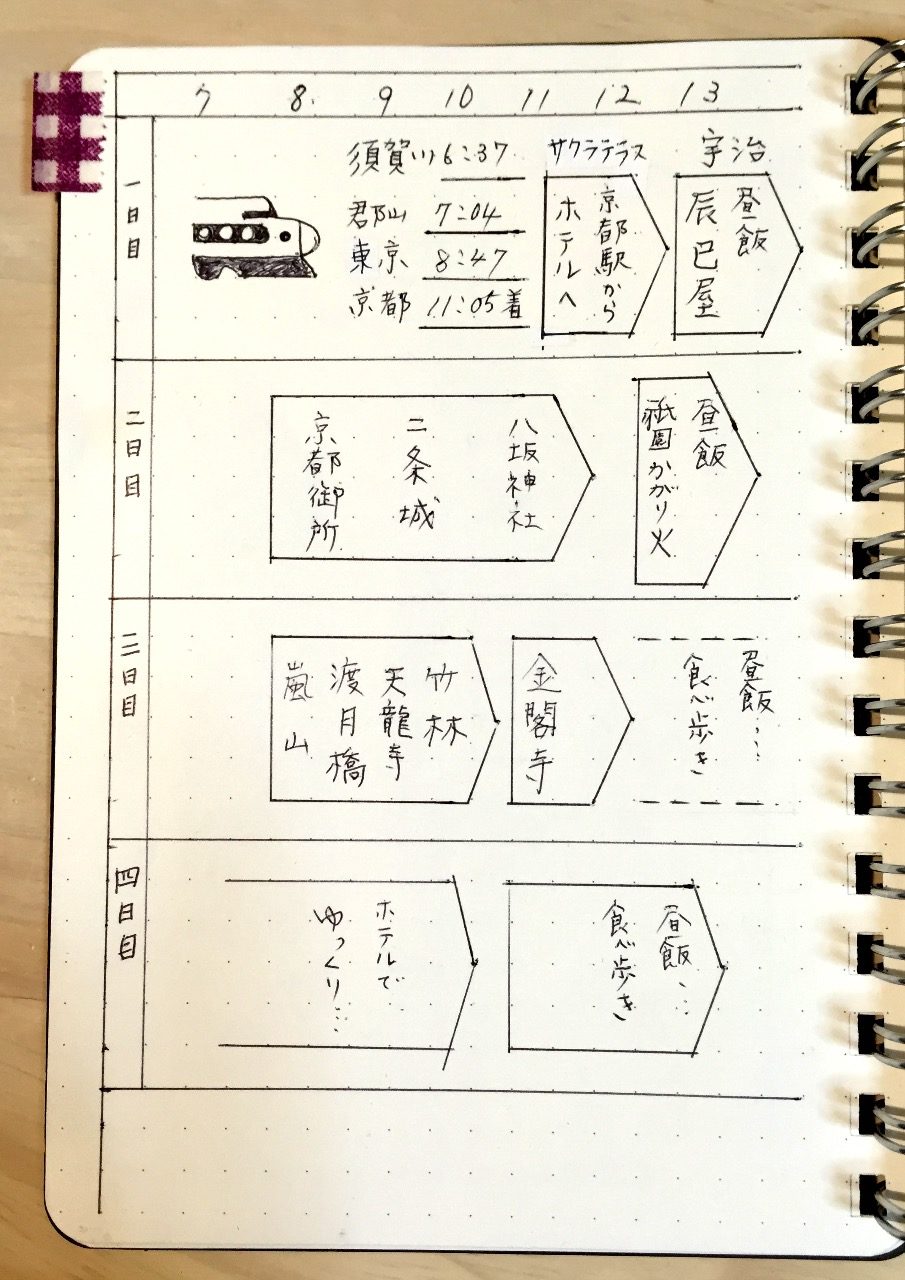 7 8. 9 10 11 12 13
一日目
須賀川 6:37
郡山 7:04
東京 8:47
京都 11:05着
サクラテラス
京都駅から
ホテルへ
宇治
昼飯
辰巳屋
二日目
京都御所
二条城
八坂神社
昼飯
祇園かがり火
三日目
嵐山
渡月橋
天龍寺
竹林
金閣寺
昼飯…
食べ歩き
四日目
ホテルで
ゆっくり…
昼飯…
食べ歩き